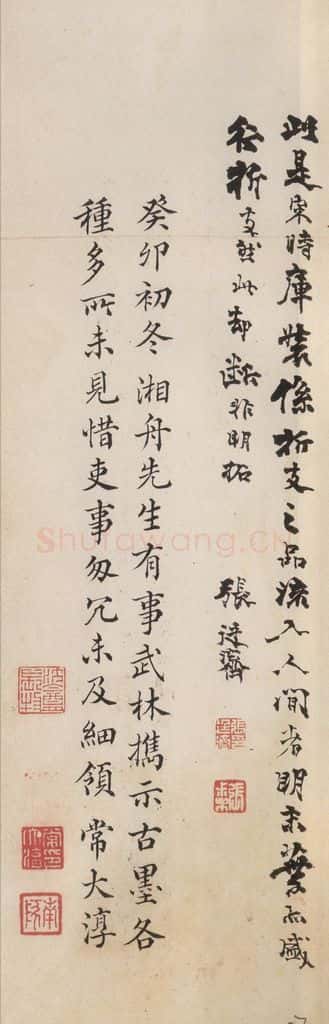 此是宋時庫裝係折支之品流入人間者明末盛
折支然此却斷非明拓
張廷濟
癸卯初冬湘舟先生有事武林攜示古墨各
種多所未見惜吏事匆冗未及細領 常大淳
Shufawang.CN